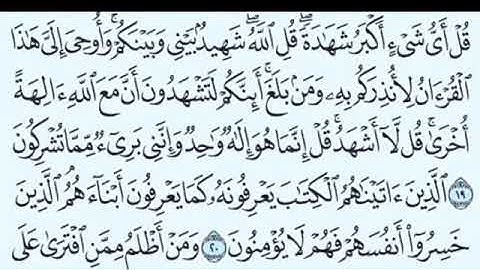 قُلْ أَىُّ شَىْءٍ أَكْبَرُ شَهَٰدَةً ۖ قُلِ ٱللَّهُ ۖ شَهِيدٌۢ بَيْنِى وَبَيْنَكُمْ ۚ وَأُوحِىَ إِلَىَّ هَٰذَا
ٱلْقُرْءَانُ لِأُنذِرَكُم بِهِۦ وَمَنۢ بَلَغَ ۚ أَئِنَّكُمْ لَتَشْهَدُونَ أَنَّ مَعَ ٱللَّهِ ءَالِهَةً
أُخْرَىٰ ۚ قُل لَّآ أَشْهَدُ ۚ قُلْ إِنَّمَا هُوَ إِلَٰهٌ وَٰحِدٌ وَإِنَّنِى بَرِىٓءٌ مِّمَّا تُشْرِكُونَ
١٩ ٱلَّذِينَ ءَاتَيْنَٰهُمُ ٱلْكِتَٰبَ يَعْرِفُونَهُۥ كَمَا يَعْرِفُونَ أَبْنَآءَهُمُ ٱلَّذِينَ
خَسِرُوٓا۟ أَنفُسَهُمْ فَهُمْ لَا يُؤْمِنُونَ ٢٠ وَمَنْ أَظْلَمُ مِمَّنِ ٱفْتَرَىٰ عَلَى